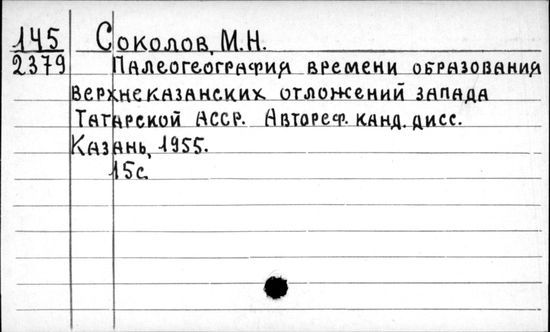 145 Соколов, М.Н.
2379 Палеогеография времени образования
верхнеказанских отложений запада
Татарской АССР. Автореф. канд. дисс.
Казань, 1955.
15с.